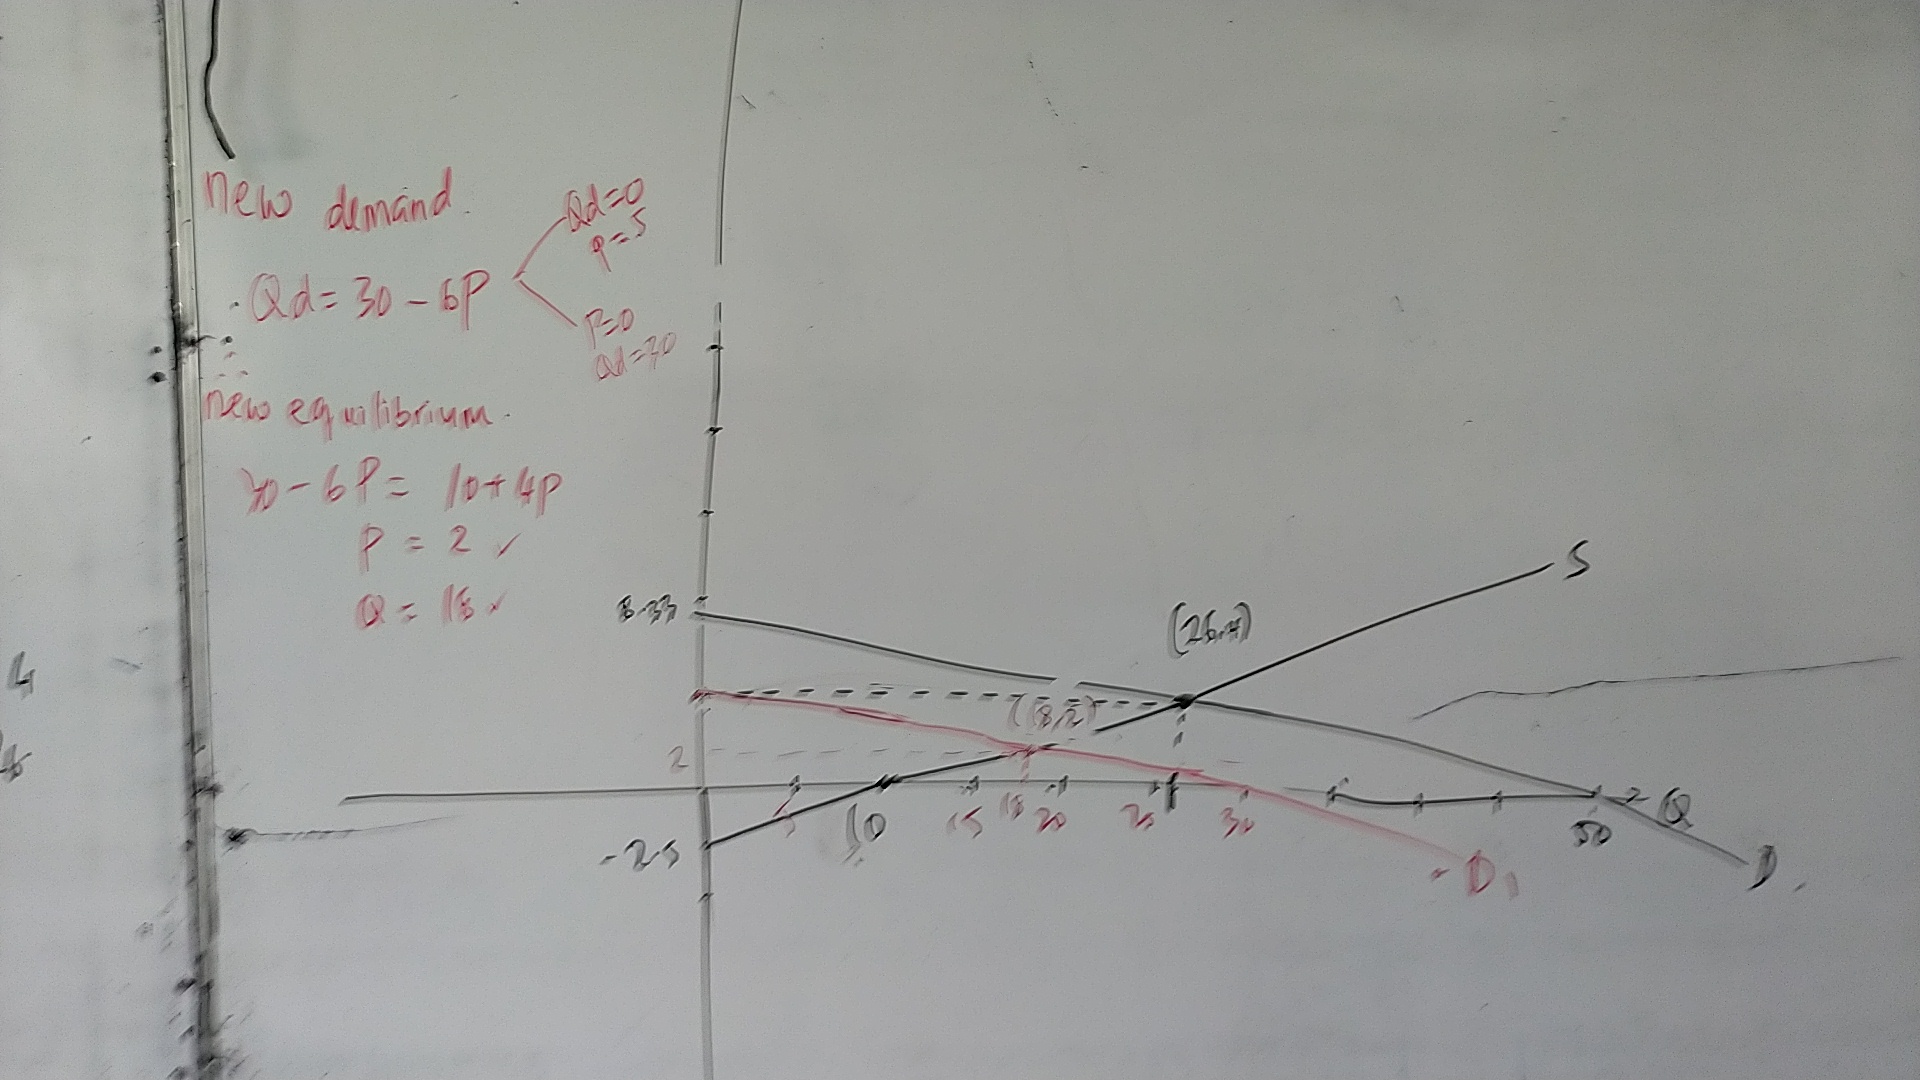 new demand.
Qd = 30 - 6P
Qd=0
P=5
P=0
Qd=30
new equilibrium.
30 - 6P = 10 + 4P
P = 2 ✓
Q = 18 ✓
4
8.33
(26,4)
S
(18,2)
2
5
10
15
18
20
25
30
50
Q
-2.5
D
D1